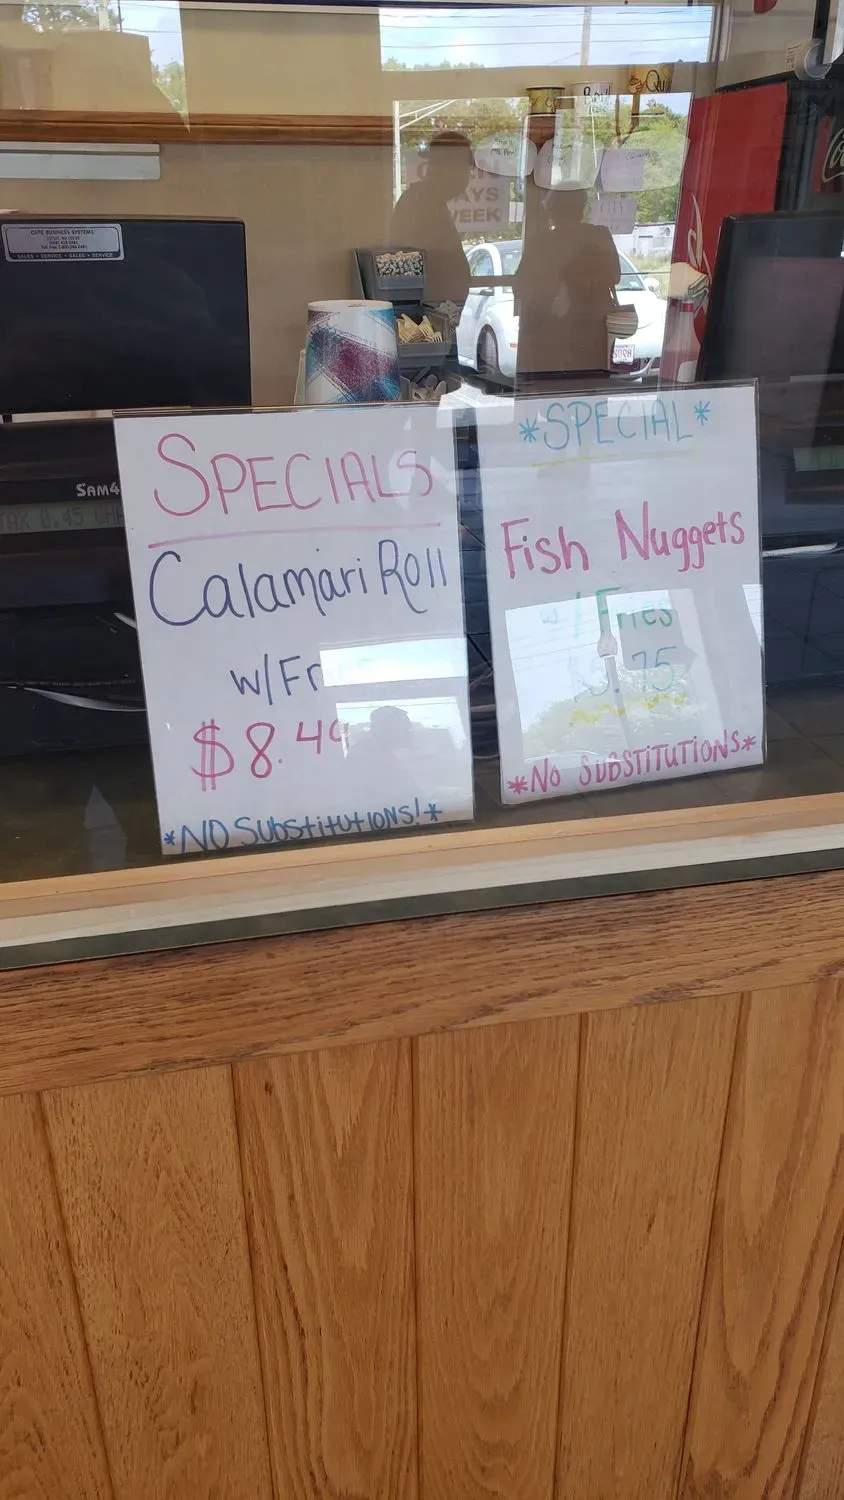 CAPE BUSINESS SYSTEMS
SALES • SERVICE • SALES • SERVICE
SAM4
TAX 0.45
WEEK
SPECIALS
Calamari Roll
w/Fr
$8.49
*NO SubstitutIONS!*
*SPECIAL*
Fish Nuggets
w/ Fries
$5.75
*No SUBSTITUTIONS*